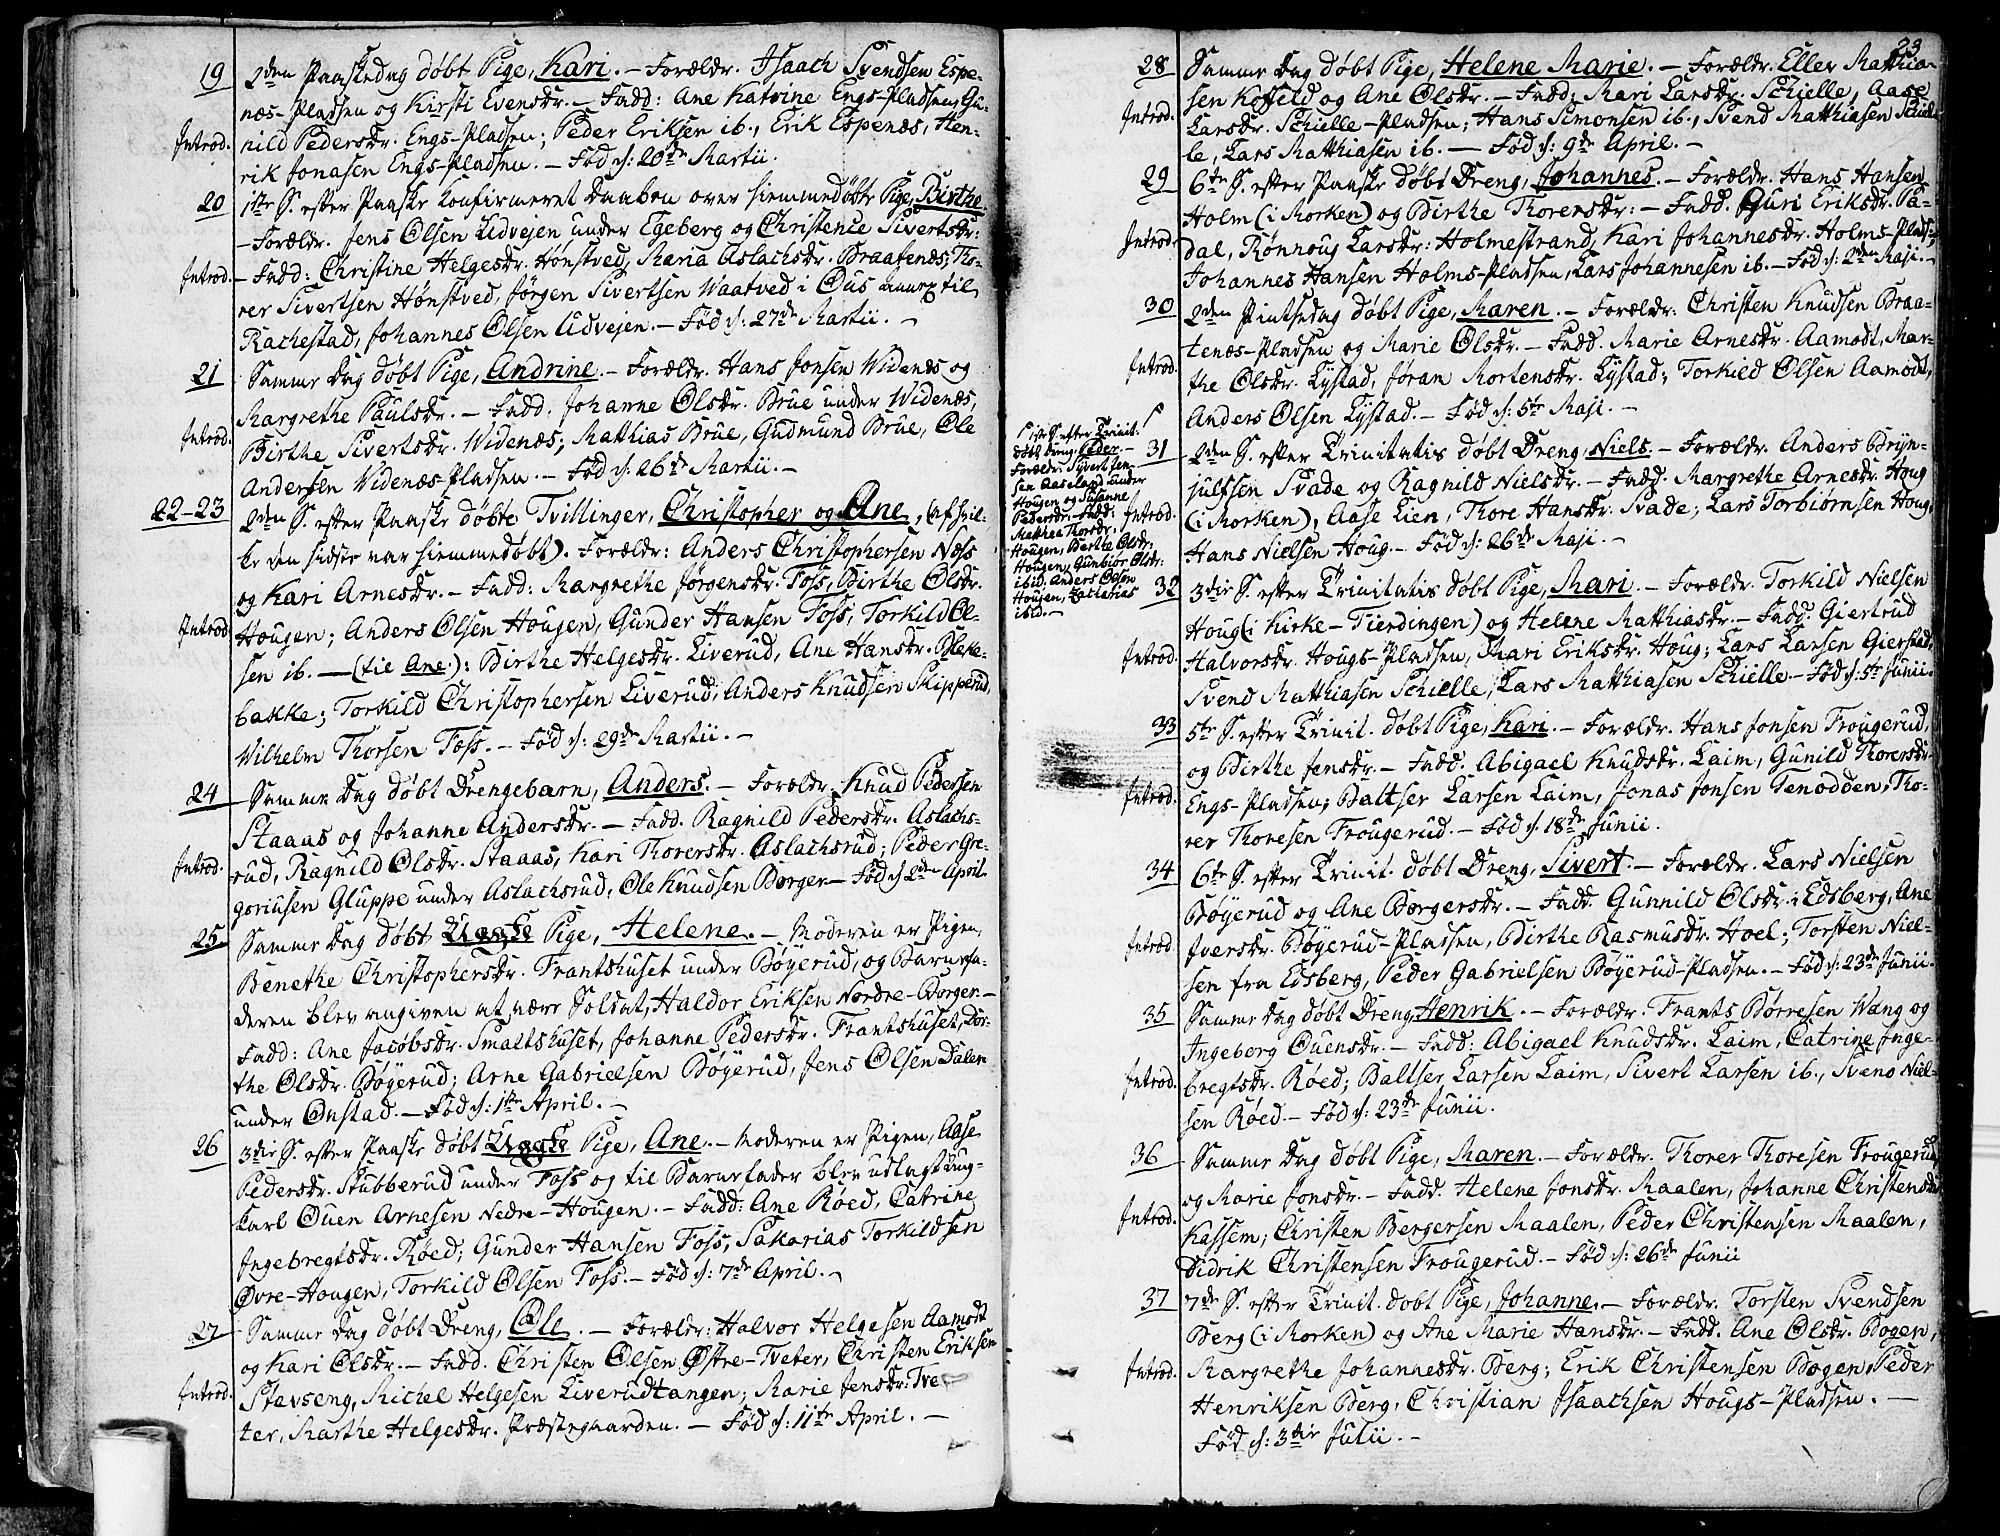 19 2den Paaskedag døbt Pige, Kari. – Forældr. Isaach Svendsen Espe-
næs-Pladsen og Kirsti Evensdr. – Fadd: Ane Katrine Engs-Pladsen, Gu-
Introd. nild Pedersdr. Engs-Pladsen; Peder Eriksen ib., Erik Espenæs, Hen-
rik Jonasen Engs-Pladsen. – Fød d: 20de Martii.
20 1ste S. efter Paaske Confirmeret Daaben over hiemmedøbte Pige, Birthe
– Forældr. Jens Olsen Udvejen under Egeberg og Christence Sivertsdr:
Introd. – Fadd: Christine Helgesdr. Hønstved, Maria Aslachsdr. Braatenæs; Tho-
rer Sivertsen Hønstved, Jørgen Sivertsen Waatved i Øus annex til
Rachestad, Johannes Olsen Udvejen. – Fød d: 27de Martii. –
21 Samme Dag døbt Pige, Andrine. – Forældr. Hans Jonsen Widenæs og
Margrethe Paulsdr. – Fadd. Johanne Olsdr. Brue under Widenæs,
Introd. Birthe Sivertsdr. Widenæs; Matthias Brue, Gudmund Brue, Ole
Andersen Widenæs-Pladsen. – Fød d: 26de Martii. –
22-23 2den S. efter Paaske døbte Tvillinger, Christopher og Ane, (af hvil-
ke den sidste var hiemmedøbt). Forældr: Anders Christophersen Næss
og Kari Arnesdr. – Fadd: Margrethe Jørgensdr. Foss, Birthe Olsdr.
Introd. Hougen; Anders Olsen Hougen, Gunder Hansen Foss, Torkild Ol-
sen ib. – (til Ane): Birthe Helgesdr. Liverud, Ane Hansdr. Bleke-
bakke; Torkild Christophersen Liverud, Anders Knudsen Skipperud,
Wilhelm Thorsen Foss. – Fød d: 29de Martii. –
24 Samme Dag døbt Drengebarn, Anders. – Forældr. Knud Pedersen
Staaas og Johanne Andersdr. – Fadd. Ragnild Pedersdr. Aslachs-
Introd. rud, Ragnild Olsdr. Staaas, Kari Thorersdr. Aslachsrud; Peder Gre-
goriusen Gluppe under Aslachsrud, Ole Knudsen Borger – Fød d 2den April
25 Samme Dag døbt Uægte Pige, Helene. – Moderen er Pigen,
Benethe Christophersdr. Frantshuset under Bøyerud, og Barnefa-
deren blev angiven at være Soldat, Haldor Eriksen Nordre-Borger. –
Fadd: Ane Jacobsdr. Smaltshuset, Johanne Pedersdr. Frantshuset, Dor-
the Olsdr. Bøyerud; Arne Gabrielsen Bøyerud, Jens Olsen Dalen
under Onstad. – Fød d: 1ste April. –
26 3die S. efter Paaske døbt Uægte Pige, Ane. – Moderen er Pigen, Aase
Pedersdr. Stubberud under Foss og til Barnefader blev udlagt Ung-
karl Ouen Arnesen Nedre-Hougen. – Fadd: Ane Røed, Catrine
Ingebregtsdr. Røed; Gunder Hansen Foss, Sakarias Torkildsen
Øvre-Hougen, Torkild Olsen Foss. – Fød d: 7de April. –
27 Samme Dag døbt Dreng, Ole. – Forældr: Halvor Helgesen Aamodt
og Kari Olsdr. – Fadd. Christen Olsen Østre-Tveter, Christen Eriksen
Introd. Stavseng, Michel Helgesen Liverudtangen; Marie Jensdr: Tve-
ter, Marthe Helgesdr. Præstegaarden. – Fød d: 11te April. –
23
28 Samme Dag døbt Pige, Helene Marie. – Forældr. Eller Matthia-
sen Koffeld og Ane Olsdr. – Fadd: Mari Larsdr. Schielle, Aase
Introd. Larsdr. Schielle-Pladsen; Hans Simonsen ib., Svend Matthiasen Schiel-
le, Lars Matthiasen ib. – Fød d: 9de April. –
29 6te S. efter Paaske døbt Dreng, Johannes. – Forældr. Hans Hansen
Holm (i Morken) og Birthe Thorersdr: – Fadd. Guri Eriksdr. Pa-
Introd. dal, Rønnoug Larsdr: Holmestrand, Kari Johannesdr. Holms-Plads:;
Johannes Hansen Holms-Pladsen, Lars Johannesen ib. – Fød d: 2den Maji. –
30 2den Pintsedag døbt Pige, Maren. – Forældr: Christen Knudsen Braa-
tenæs-Pladsen og Marie Olsdr. – Fadd. Marie Arnesdr. Aamodt, Mar-
Introd. the Olsdr. Lystad, Jøran Mortensdr. Lystad; Torkild Olsen Aamodt,
Anders Olsen Lystad. – Fød d: 5te Maji. –
1ste S. efter Trinit.
døbt Dreng, Peder. –
Forældr. Syvert Jen-
sen Aaseland under
Hougen og Susanne
Pedersdr. – Fadd.
Matthea Thorsdr,
Hougen, Barthe Olsdr.
Hougen, Gunbiør Olsdr:
ibid. Anders Olsen
Hougen, Zacharias
ibid. –
31 2den S. efter Trinitatis døbt Dreng, Niels. – Forældr. Anders Bryn-
julfsen Svade og Ragnild Nielsdr. – Fadd. Margrethe Arnesdr. Houg
Introd. (i Morken), Aase Lien, Thore Hansdr. Svade; Lars Torbiørnsen Houg,
Hans Nielsen Houg. – Fød d: 26de Maji. –
32 3die S. efter Trinitatis døbt Pige, Mari. – Forældr. Torkild Nielsen
Houg (i Kirke-Fierdingen) og Helene Matthiasdr. – Fadd. Giertrud
Introd. Halvorsdr. Hougs-Pladsen, Mari Eriksdr. Houg; Lars Larsen Gierstad,
Svend Matthiasen Schielle, Lars Matthiasen Schielle – Fød d: 5te Junii.
33 5te S. efter Trinit. døbt Pige, Kari. – Forældr. Hans Jonsen Frougerud,
og Birthe Jensdr. – Fadd. Abigael Knudsdr. Laim, Gunild Thorersdr.
Introd. Engs-Pladsen; Baltser Larsen Laim, Jonas Jonsen Tenodden, Tho-
rer Thoresen Frougerud. – Fød d. 18de Junii.
34 6te S. efter Trinit. døbt Dreng, Sivert. – Forældr. Lars Nielsen
Bøyerud og Ane Borgersdr. – Fadd. Gunnild Olsdr. i Edsberg, Ane
Introd Iversdr. Bøyerud-Pladsen, Birthe Rasmusdr. Hoel; Torsten Niel-
sen fra Edsberg, Peder Gabrielsen Bøyerud-Pladsen. – Fød d: 23de Junii.
35 Samme Dag døbt Dreng, Henrik. – Forældr. Frants Børresen Wang og
Ingeborg Ouensdr. – Fadd: Abigael Knudsdr. Laim, Catrine Inge-
Introd. bregtsdr. Røed; Baltser Larsen Laim, Sivert Larsen ib., Svend Niel-
sen Røed. – Fød d: 23de Junii.
36 Samme Dag døbt Pige, Maren. – Forældr. Thorer Thoresen Frougerud
og Marie Jonsdr. – Fadd. Helene Jonsdr. Maalen, Johanne Christensdr.
Introd. Kassem; Christen Bergersen Maalen, Peder Christensen Maalen,
Didrik Christensen Frougerud. – Fød d: 26de Junii
37 7de S. efter Trinit. døbt Pige, Johanne. – Forældr. Torsten Svendsen
Berg (i Morken) og Ane Marie Hansdr. – Fadd. Ane Olsdr. Bogen,
Introd. Margrethe Johannesdr. Berg; Erik Christensen Bogen, Peder
Henriksen Berg, Christian Isaachsen Hougs-Pladsen. –
Fød d: 3die Julii. –